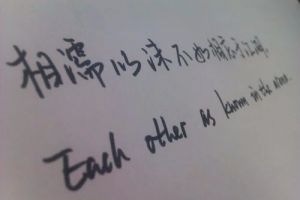 相濡以沫不如相忘于江湖
Each other as known in the